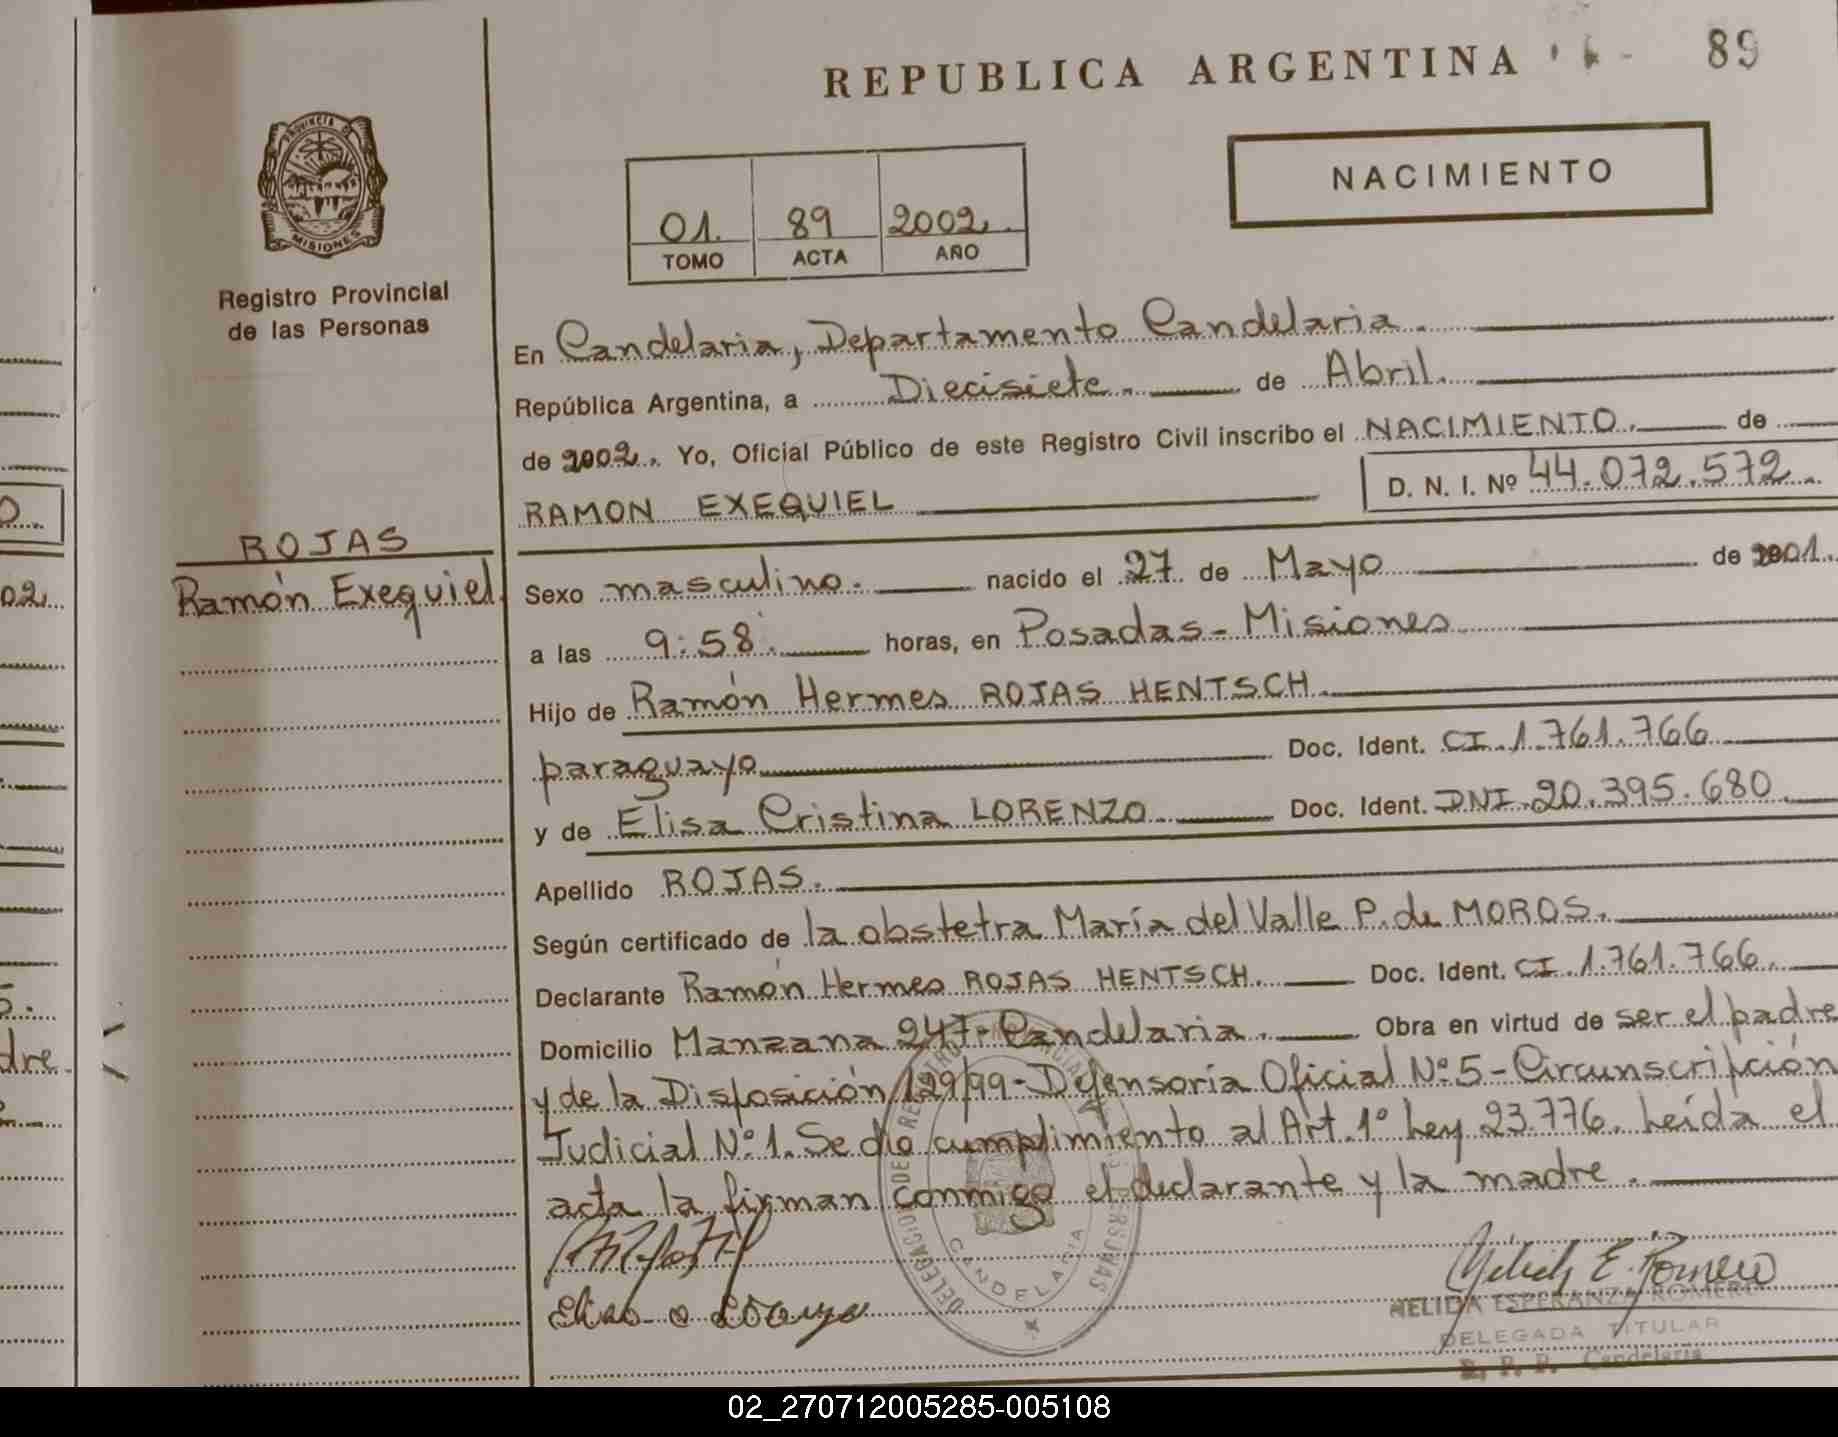 REPUBLICA ARGENTINA
89
PROVINCIA DE
MISIONES
Registro Provincial
de las Personas
NACIMIENTO
01. 89 2002.
TOMO ACTA AÑO
En Candelaria, Departamento Candelaria.
República Argentina, a Diecisiete. de Abril.
de 2002. Yo, Oficial Público de este Registro Civil inscribo el NACIMIENTO. de
RAMON EXEQUIEL D. N. I. Nº 44.072.572.
ROJAS
Ramón Exequiel.
Sexo masculino. nacido el 27 de Mayo de 2001.
a las 9:58. horas, en Posadas - Misiones
Hijo de Ramón Hermes ROJAS HENTSCH.
paraguayo Doc. Ident. CI. 1.761.766
y de Elisa Cristina LORENZO Doc. Ident. DNI. 20.395.680
Apellido ROJAS.
Según certificado de la obstetra María del Valle P. de MOROS.
Declarante Ramón Hermes ROJAS HENTSCH. Doc. Ident. CI. 1.761.766.
Domicilio Manzana 247 - Candelaria. Obra en virtud de ser el padre
y de la Disposición 129/99 - Defensoría Oficial Nº 5 - Circunscripción
Judicial Nº 1. Se dio cumplimiento al Art. 1º Ley 23.776. Leída el
acta la firman conmigo el declarante y la madre.
CANDELARIA
NELIDA ESPERANZA ROMERO
DELEGADA TITULAR
R. P. P. Candelaria
02.
dre.
02_270712005285-005108